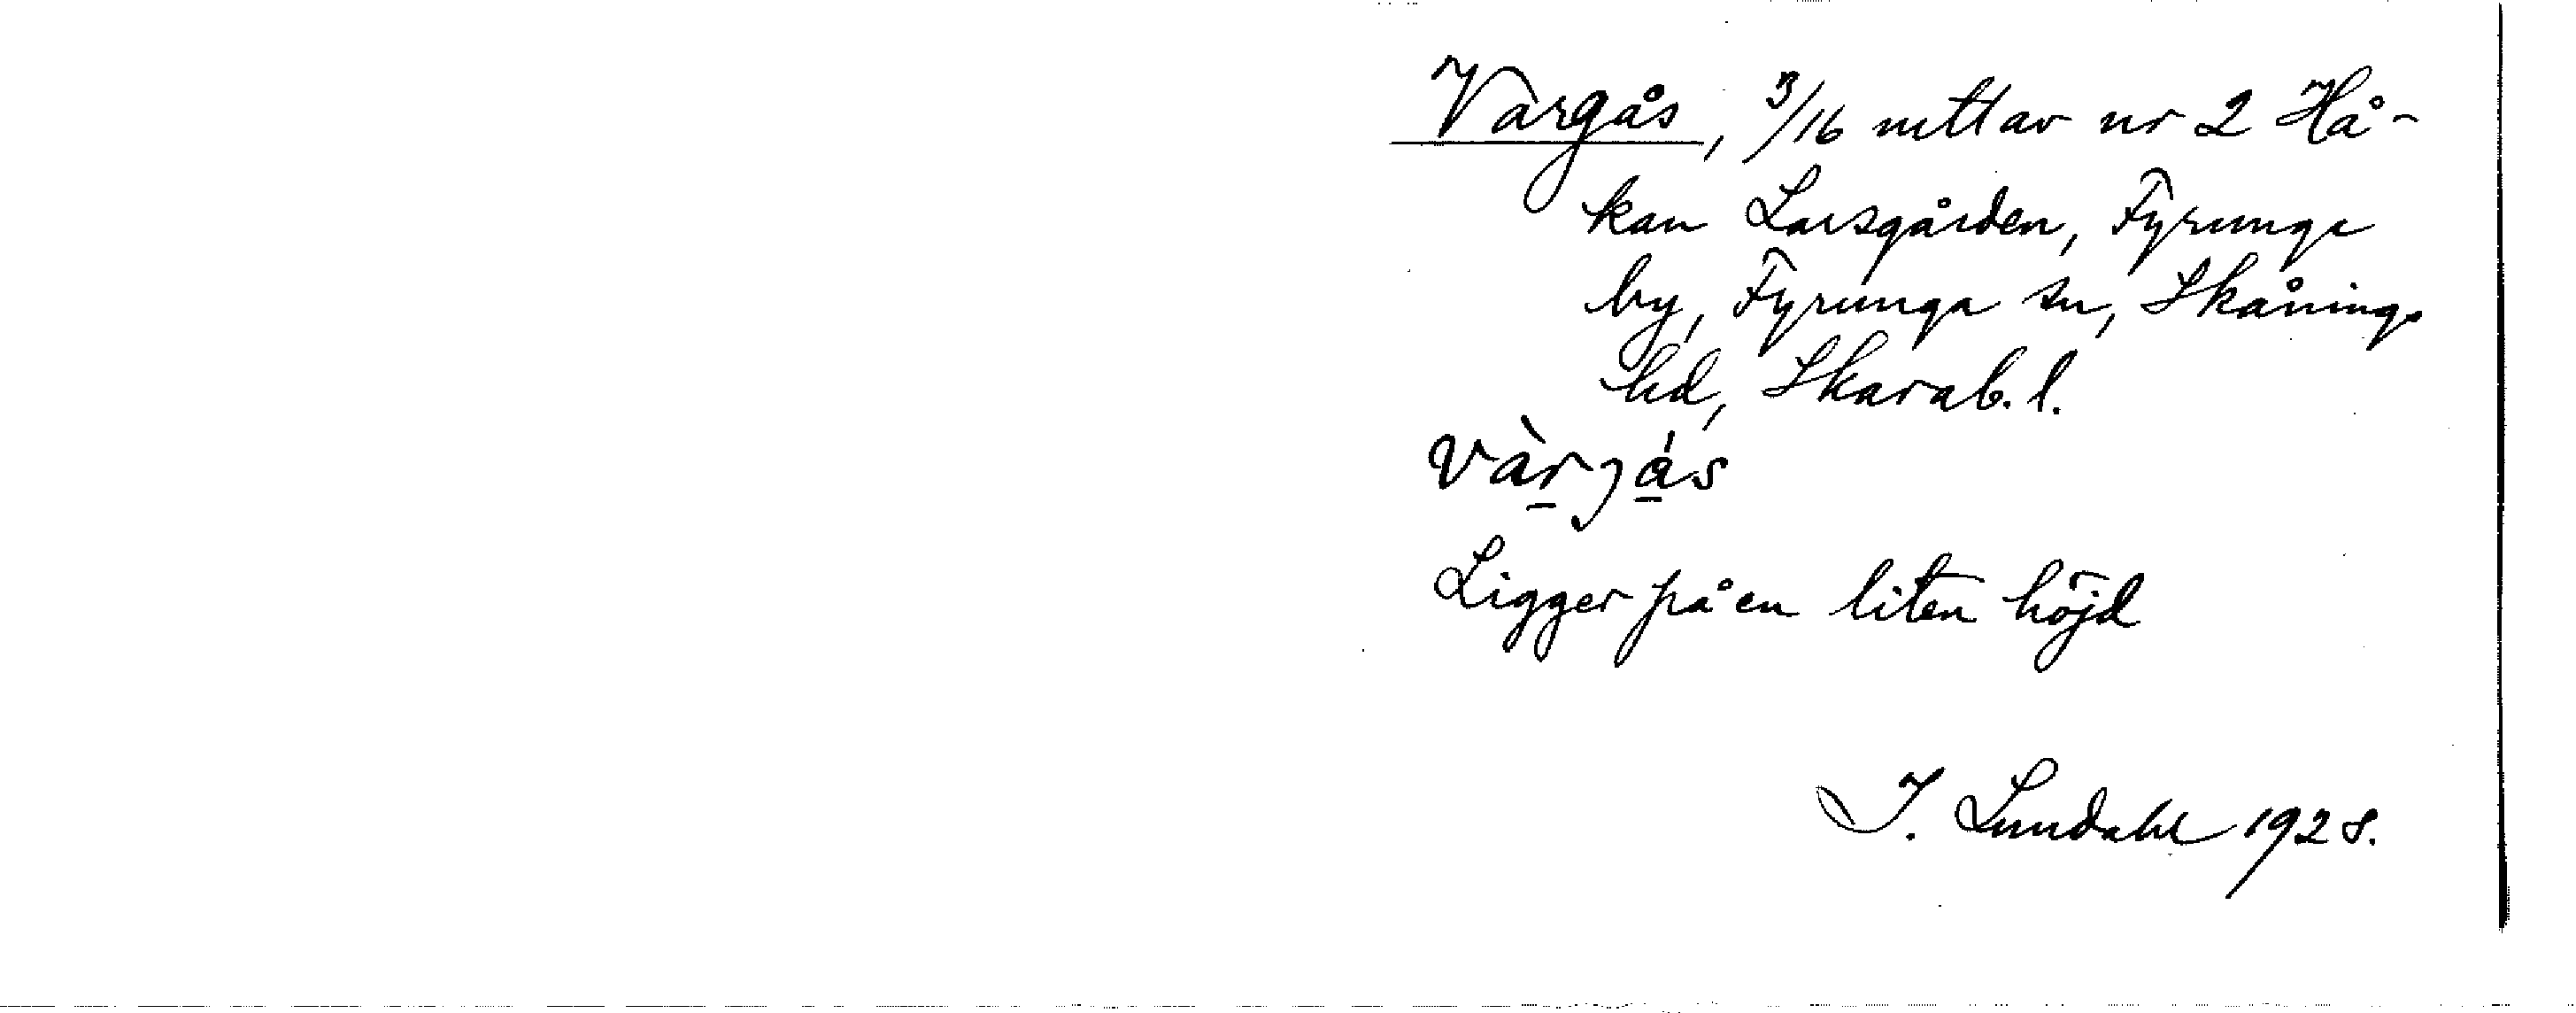 Vargås, 3/16 mtl av nr 2 Hå-
kan Larsgården, Fyrunga
by, Fyrunga sn, Skånings
hd, Skarab. l.
vàrgås
Ligger på en liten höjd
I. Lundahl 1928.